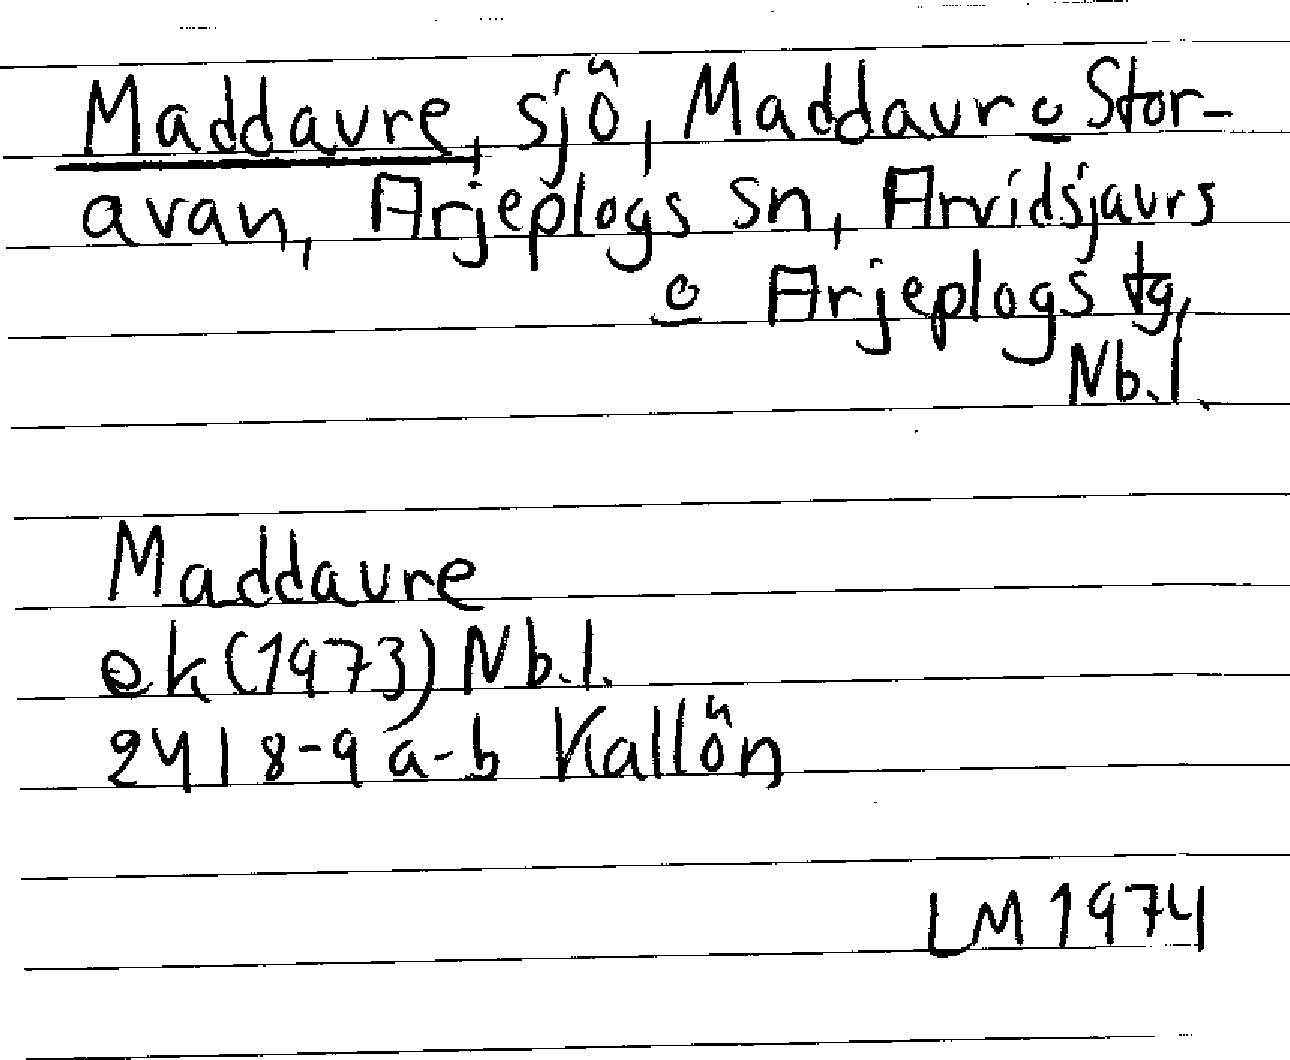 Maddaure, sjö, Maddaur o Stor-
avan, Arjeplogs sn, Arvidsjaurs
o Arjeplogs tg,
Nb.l.
Maddaure
ek (1973) Nb.l.
24 I 8-9 a-b Kallön
LM 1974